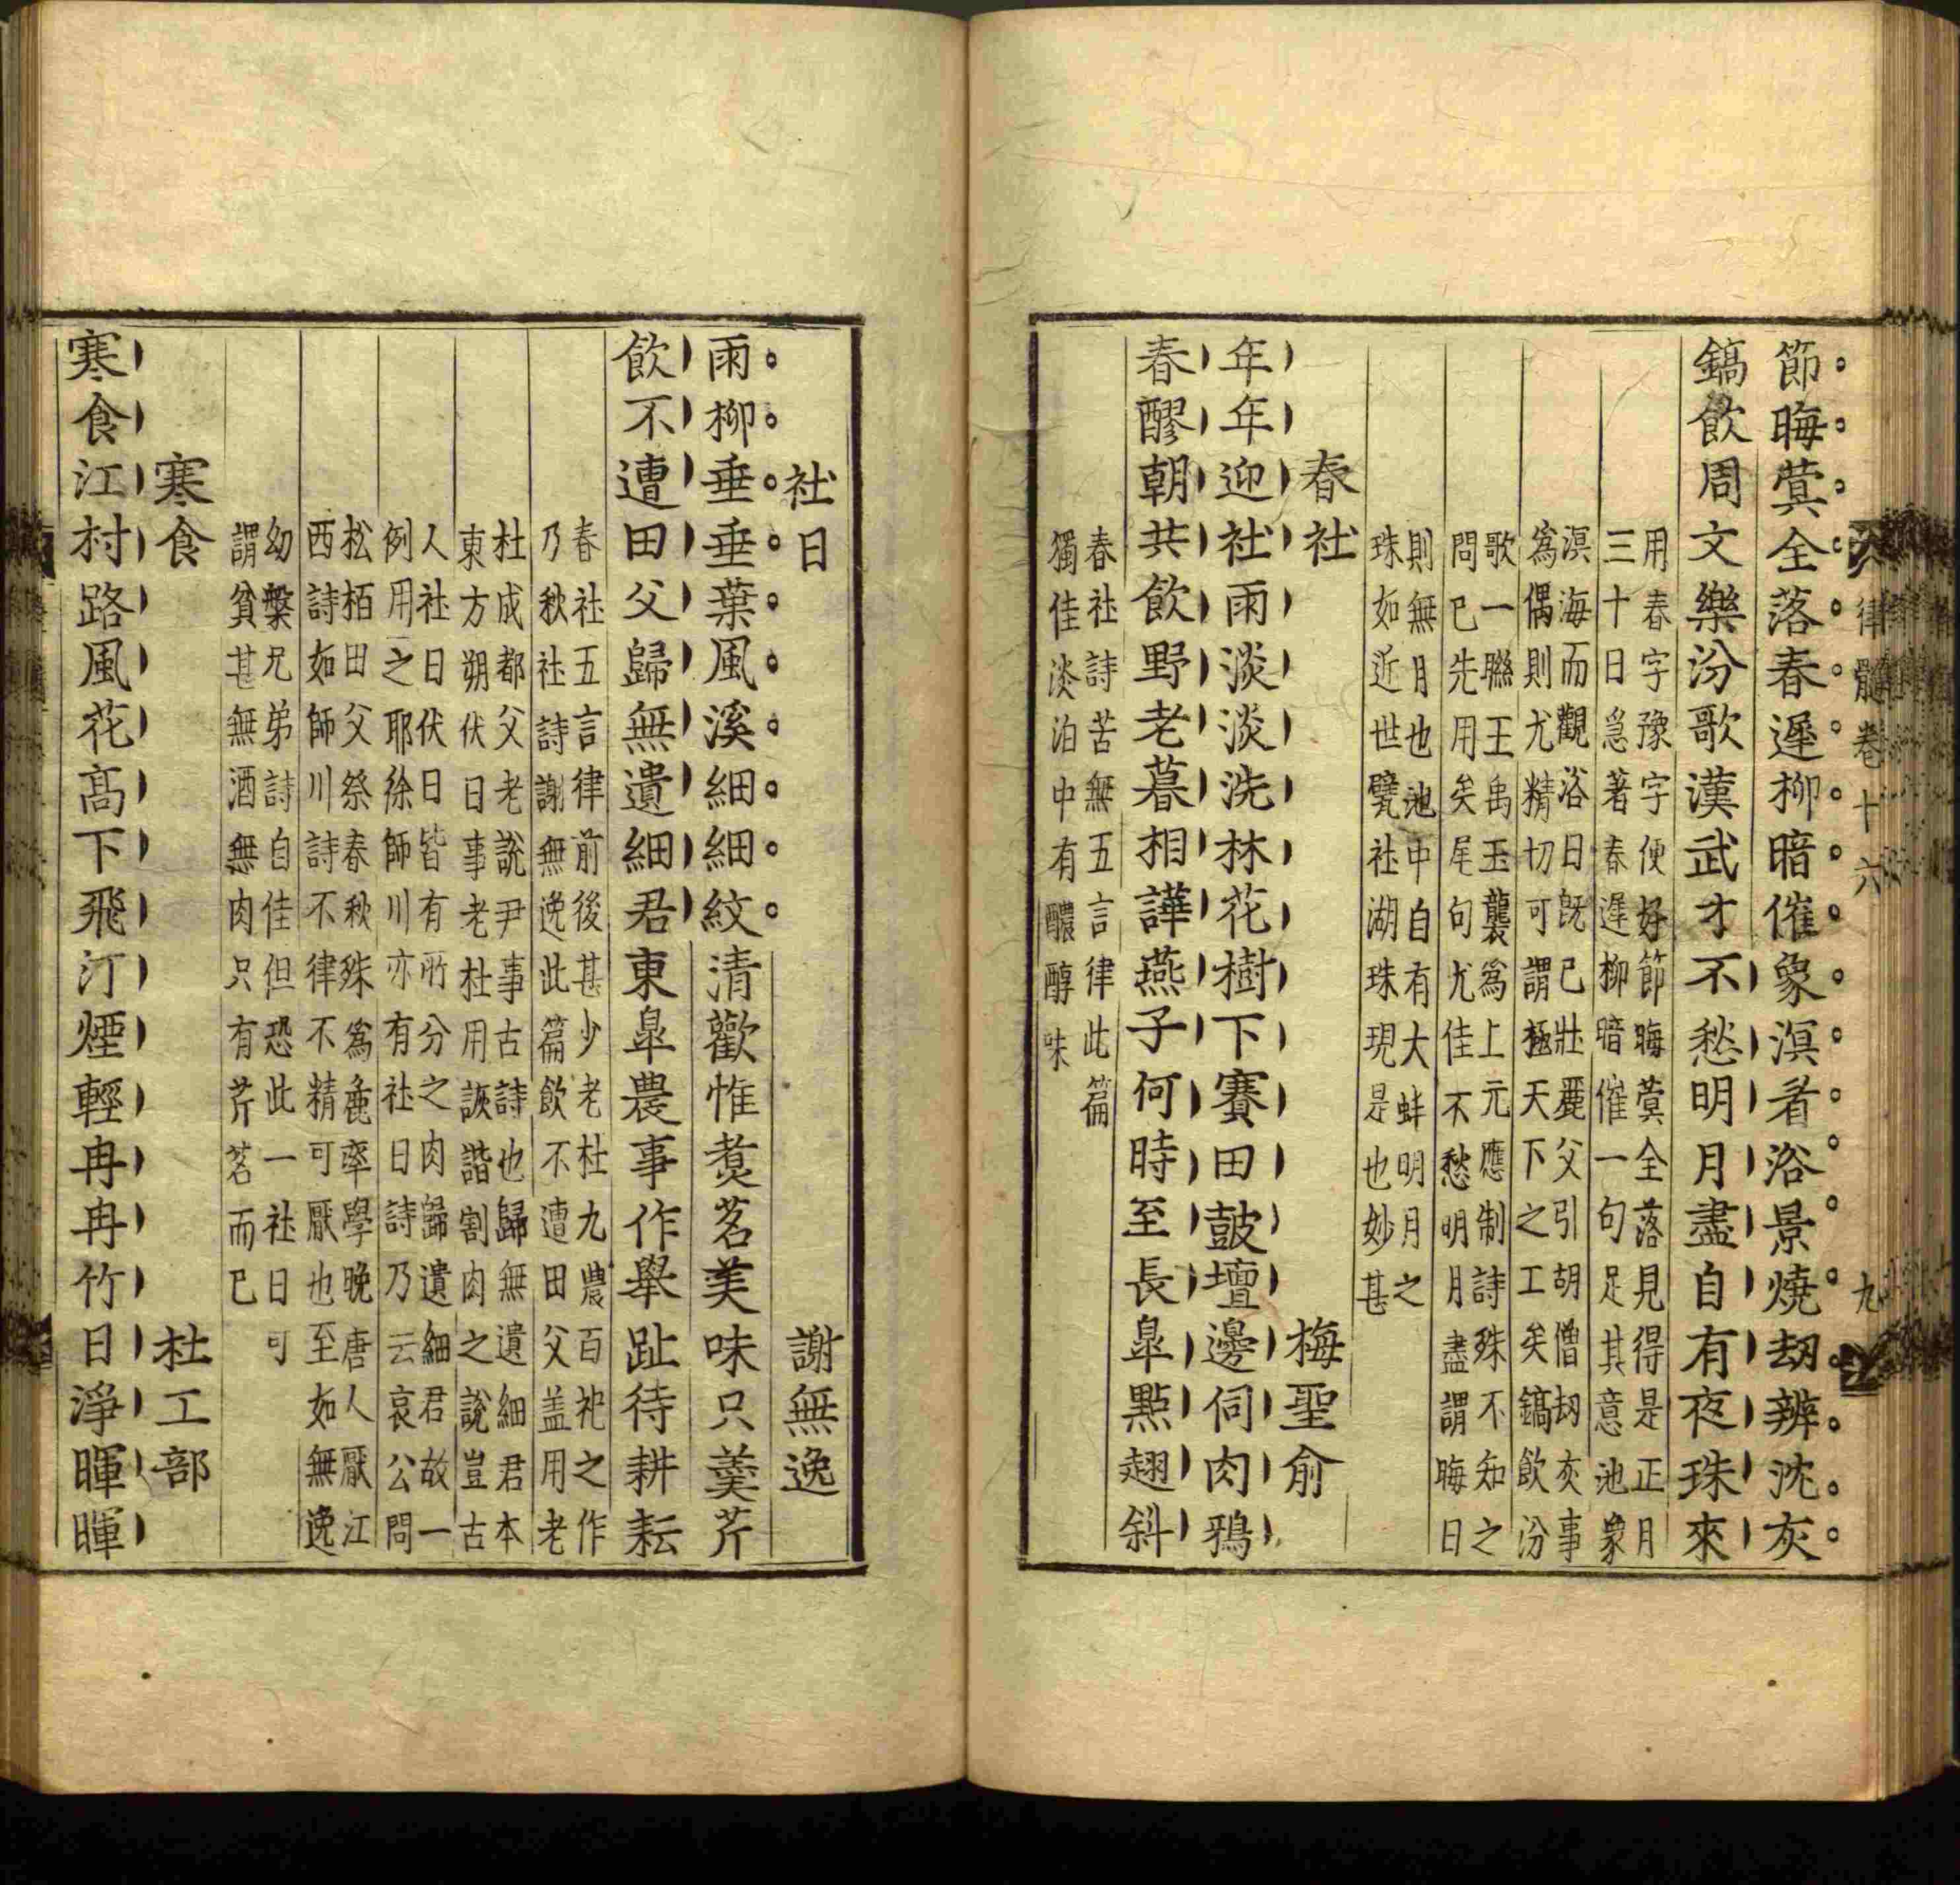 律髓卷十六 九
節晦蓂全落春遲柳暗催象溟看浴景燒劫辨沈灰
鎬飲周文樂汾歌漢武才不愁明月盡自有夜珠來
用春字豫字便好節晦蓂全落見得是正月
三十日急著春遲柳暗催一句足其意池象
溟海而觀浴日既已壯麗父引胡僧劫灰事
爲偶則尤精切可謂極天下之工矣鎬飲汾
歌一聯王禹玉襲爲上元應制詩殊不知之
問已先用矣尾句尤佳不愁明月盡謂晦日
則無月也池中自有大蚌明月之
珠如近世甓社湖珠現是也妙甚
春社 梅聖俞
年年迎社雨淡淡洗林花樹下賽田鼓壇邊伺肉鴉
春醪朝共飲野老暮相譁燕子何時至長皐點翅斜
春社詩苦無五言律此篇
獨佳淡泊中有醲醇味
社日 謝無逸
雨柳垂垂葉風溪細細紋清歡惟煑茗美味只羮芹
飲不遭田父歸無遺細君東皐農事作舉趾待耕耘
春社五言律前後甚少老杜九農百祀之作
乃秋社詩謝無逸此篇飲不遭田父盖用老
杜成都父老說尹事古詩也歸無遺細君本
東方朔伏日事老杜用詼諧割肉之說豈古
人社日伏日皆有所分之肉歸遺細君故一
例用之耶徐師川亦有社日詩乃云哀公問
松栢田父祭春秋殊爲麄率學晚唐人厭江
西詩如師川詩不律不精可厭也至如無逸
幼槃兄弟詩自佳但恐此一社日可
謂貧甚無酒無肉只有芹茗而已
寒食 杜工部
寒食江村路風花髙下飛汀煙輕冉冉竹日淨暉暉